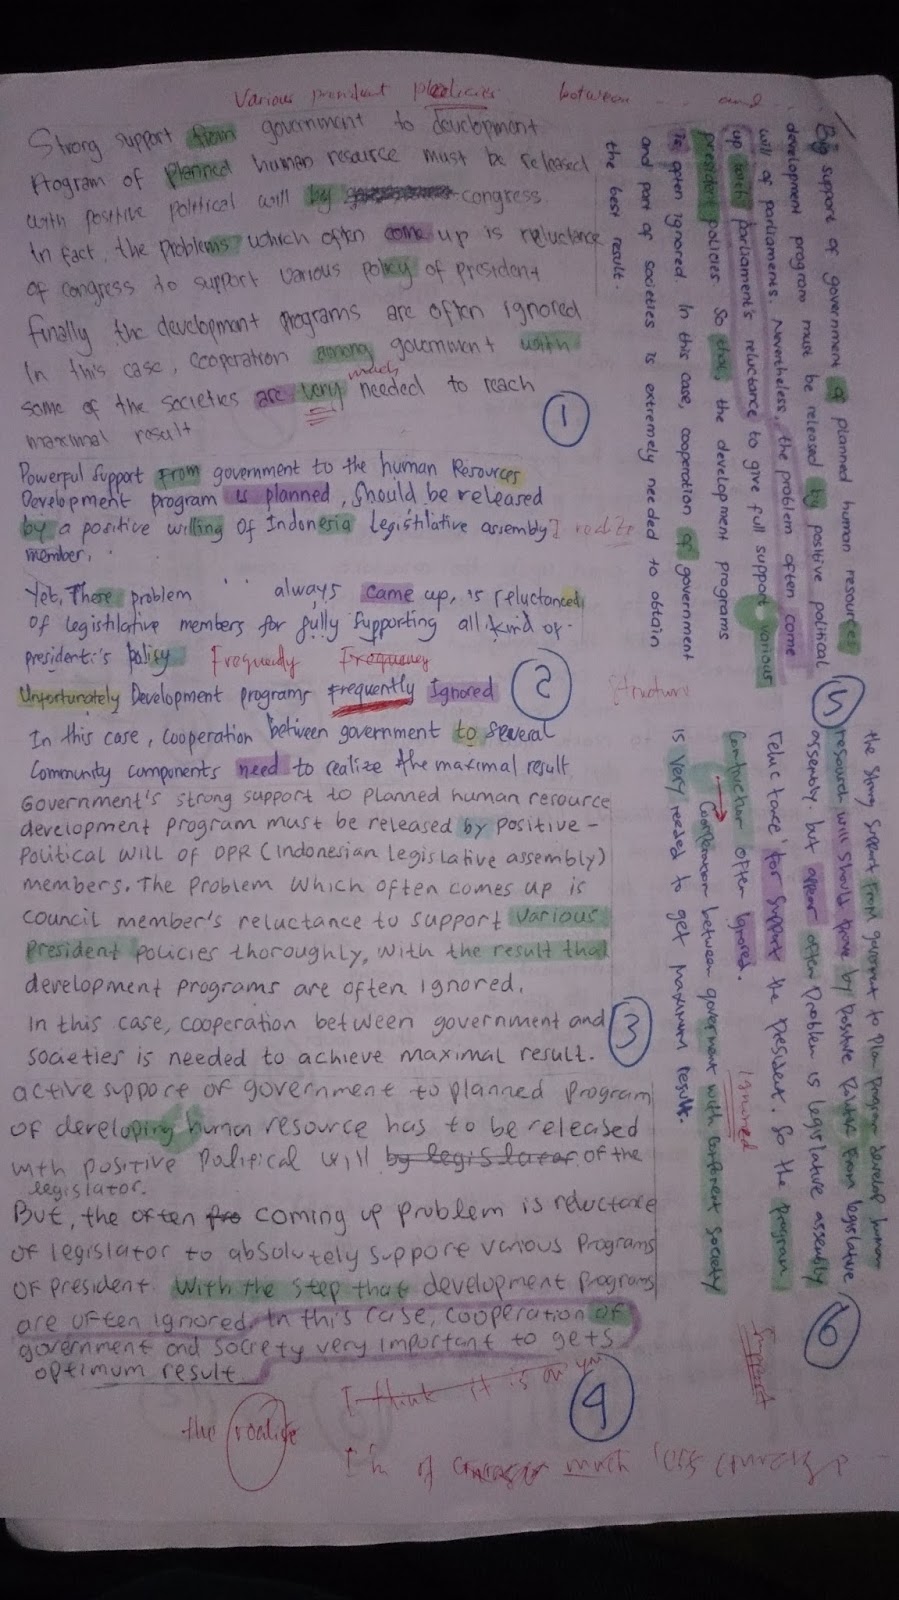 Various president policies between ... and ...
Strong support from government to development
Program of planned human resource must be released
with positive political will by congress
In fact, the problems which often come up is reluctance
of congress to support various policy of president
finally the development programs are often ignored
In this case, cooperation among government with
some of the societies are very much needed to reach
maximal result
1
Powerful Support From government to the human Resources
Development program is planned, should be released
by a positive willing of Indonesia legistilative assembly
member.
Yet, These problem always came up, is reluctanced
of legistilative members for fully supporting all kind of
president's policy Frequently Frequency
Unfortunately Development programs Frequently Ignored
2
Structure
In this case, cooperation between government to several
Community components need to realize the maximal result
Government's strong support to planned human resource
development program must be released by positive -
Political will of DPR (Indonesian legislative assembly)
members. The problem which often comes up is
council member's reluctance to support various
President policies thoroughly, with the result that
development programs are often ignored.
In this case, cooperation between government and
societies is needed to achieve maximal result.
3
active support of government to planned program
of developing human resource has to be released
with positive political will by legislator of the
legislator.
But, the often coming up problem is reluctance
of legislator to absolutely support various programs
of president. With the step that development programs
are often ignored. In this case, cooperation of
government and society very important to gets
optimum result
4
I think it is on
the
of much
Big support of government of planned human resources
development program must be released by positive political
will of parliaments. Nevertheless, the problem often come
up with parliament's reluctance to give full support various
president policies. So that, the development programs
is often ignored. In this case, cooperation of government
and part of societies is extremely needed to obtain
the best result.
5
the strong support from to plan program develop human
resource will should by positive from legislative
assembly. but appear often problem is legislative assembly
reluctance for support the president. So the program
often ignored.
Ignored
Cooperation between goverment with society
is very needed to get maximum result.
6
Support